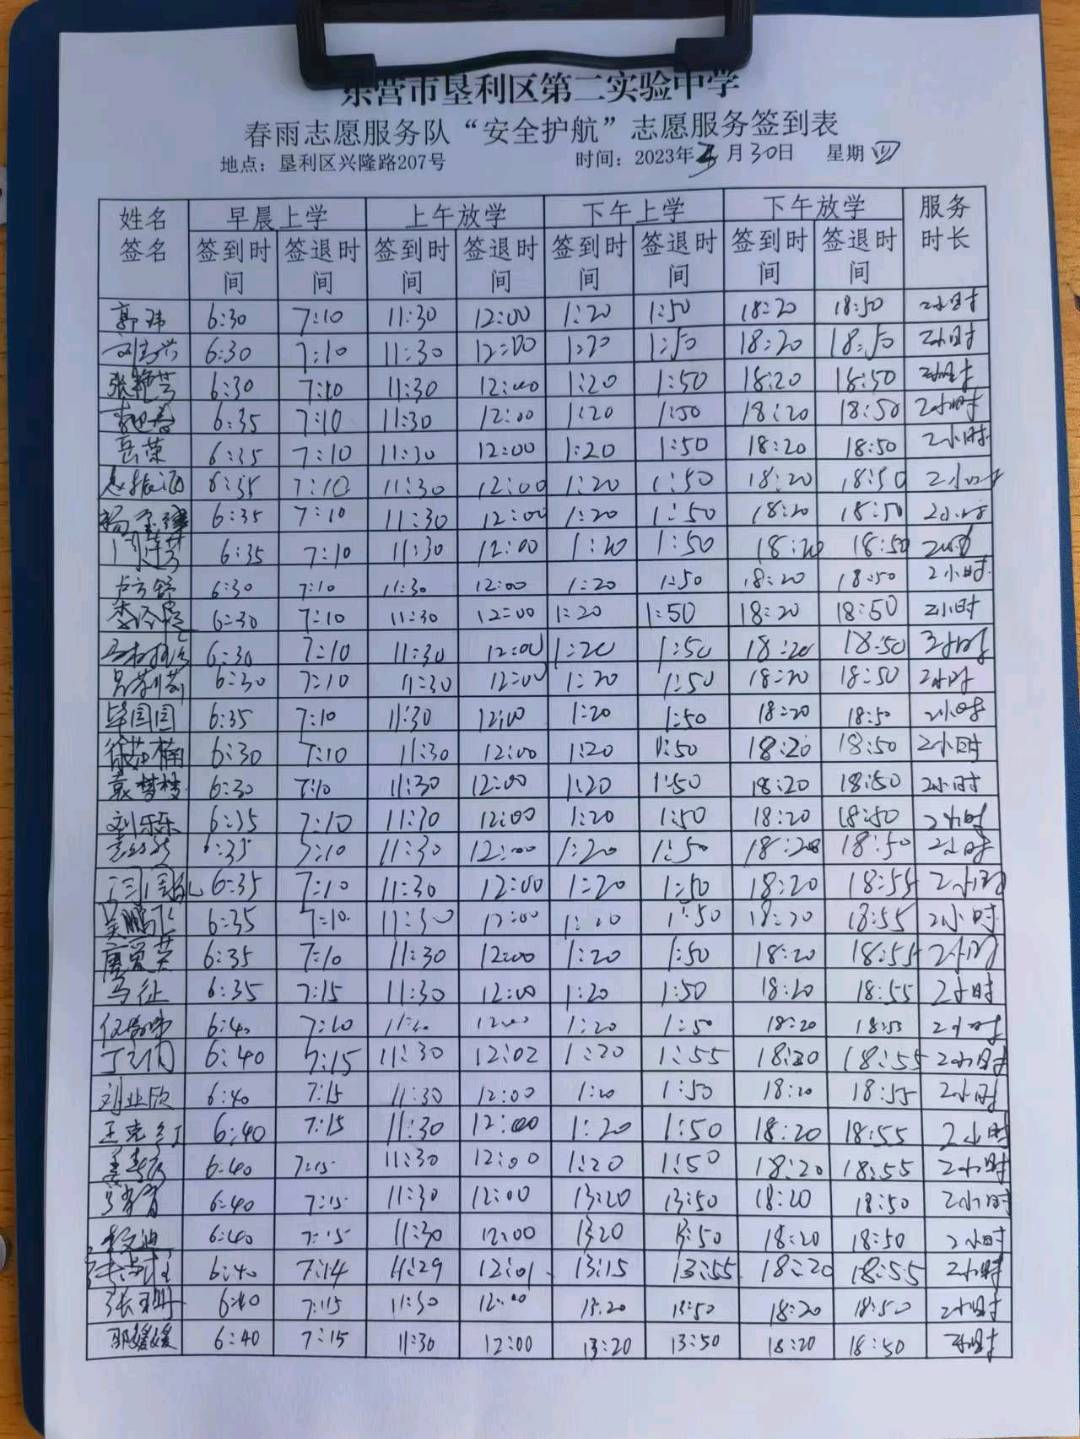 东营市垦利区第二实验中学
春雨志愿服务队“安全护航”志愿服务签到表
地点：垦利区兴隆路207号 时间：2023年 月30日 星期四
姓名签名 早晨上学 上午放学 下午上学 下午放学 服务时长
签到时间 签退时间 签到时间 签退时间 签到时间 签退时间 签到时间 签退时间
郭玮 6:30 7:10 11:30 12:00 1:20 1:50 18:20 18:50 2小时
6:30 7:10 11:30 12:00 1:20 1:50 18:20 18:50 2小时
张艳芳 6:30 7:10 11:30 12:00 1:20 1:50 18:20 18:50 2小时
6:35 7:10 11:30 12:00 1:20 1:50 18:20 18:50 2小时
岳荣 6:35 7:10 11:30 12:00 1:20 1:50 18:20 18:50 2小时
6:35 7:10 11:30 12:00 1:20 1:50 18:20 18:50 2小时
6:35 7:10 11:30 12:00 1:20 1:50 18:20 18:50 2小时
6:35 7:10 11:30 12:00 1:20 1:50 18:20 18:50
6:30 7:10 11:30 12:00 1:20 1:50 18:20 18:50 2小时
6:30 7:10 11:30 12:00 1:20 1:50 18:20 18:50 2小时
6:30 7:10 11:30 12:00 1:20 1:50 18:20 18:50 小时
6:30 7:10 11:30 12:00 1:20 1:50 18:20 18:50 2小时
毕园园 6:35 7:10 11:30 12:00 1:20 1:50 18:20 18:50 2小时
6:30 7:10 11:30 12:00 1:20 1:50 18:20 18:50 2小时
袁梦梦 6:30 7:10 11:30 12:00 1:20 1:50 18:20 18:50 2小时
刘乐乐 6:35 7:10 11:30 12:00 1:20 1:50 18:20 18:50 2小时
6:35 7:10 11:30 12:00 1:20 1:50 18:20 18:50 2小时
6:35 7:10 11:30 12:00 1:20 1:50 18:20 18:55 2小时
吴鹏飞 6:35 7:10 11:30 12:00 1:50 18:20 18:55 2小时
6:35 7:10 11:30 12:00 1:20 1:50 18:20 18:55 2小时
马征 6:35 7:15 11:30 12:00 1:20 1:50 18:20 18:55 2小时
6:40 7:10 12:00 1:20 1:50 18:20 18:55 2小时
6:40 7:15 11:30 12:02 1:20 1:55 18:20 18:55 2小时
刘业欣 6:40 7:15 11:30 12:00 1:20 1:50 18:20 18:55 2小时
6:40 7:15 11:30 12:00 1:20 1:50 18:20 18:55 2小时
6:40 7:15 11:30 12:00 1:20 1:50 18:20 18:55 2小时
6:40 7:15 11:30 12:00 13:20 13:50 18:20 18:50 2小时
6:40 7:15 11:30 12:00 13:20 13:50 18:20 18:50 2小时
6:40 7:14 11:29 12:01 13:15 13:55 18:20 18:55 2小时
6:40 7:15 11:30 12:00 13:20 13:50 18:20 18:50 2小时
6:40 7:15 11:30 12:00 13:20 13:50 18:20 18:50 2小时